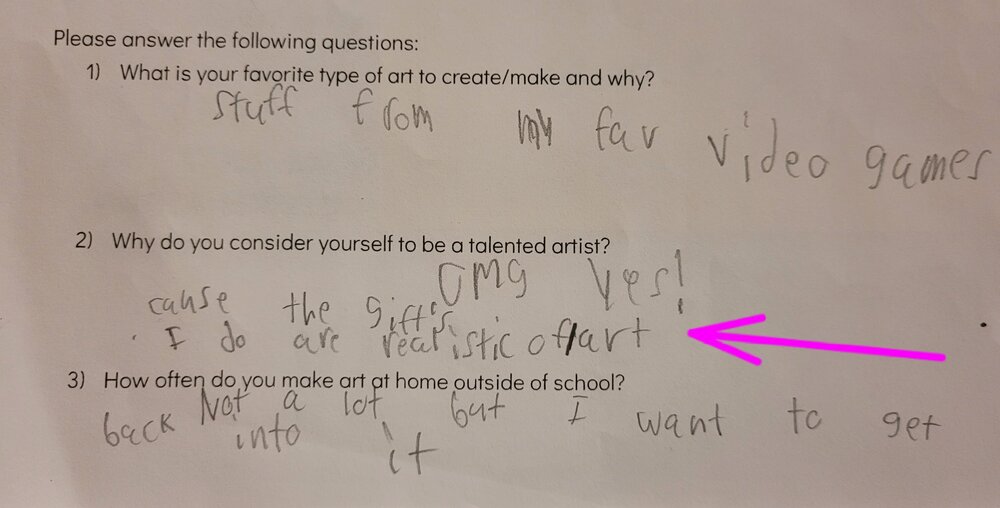 Please answer the following questions:
1) What is your favorite type of art to create/make and why?
stuff from my fav video games
2) Why do you consider yourself to be a talented artist?
OMG Yes!
cause the gift's
I do are realistic of art
3) How often do you make art at home outside of school?
Not a lot but I want to get
back into it